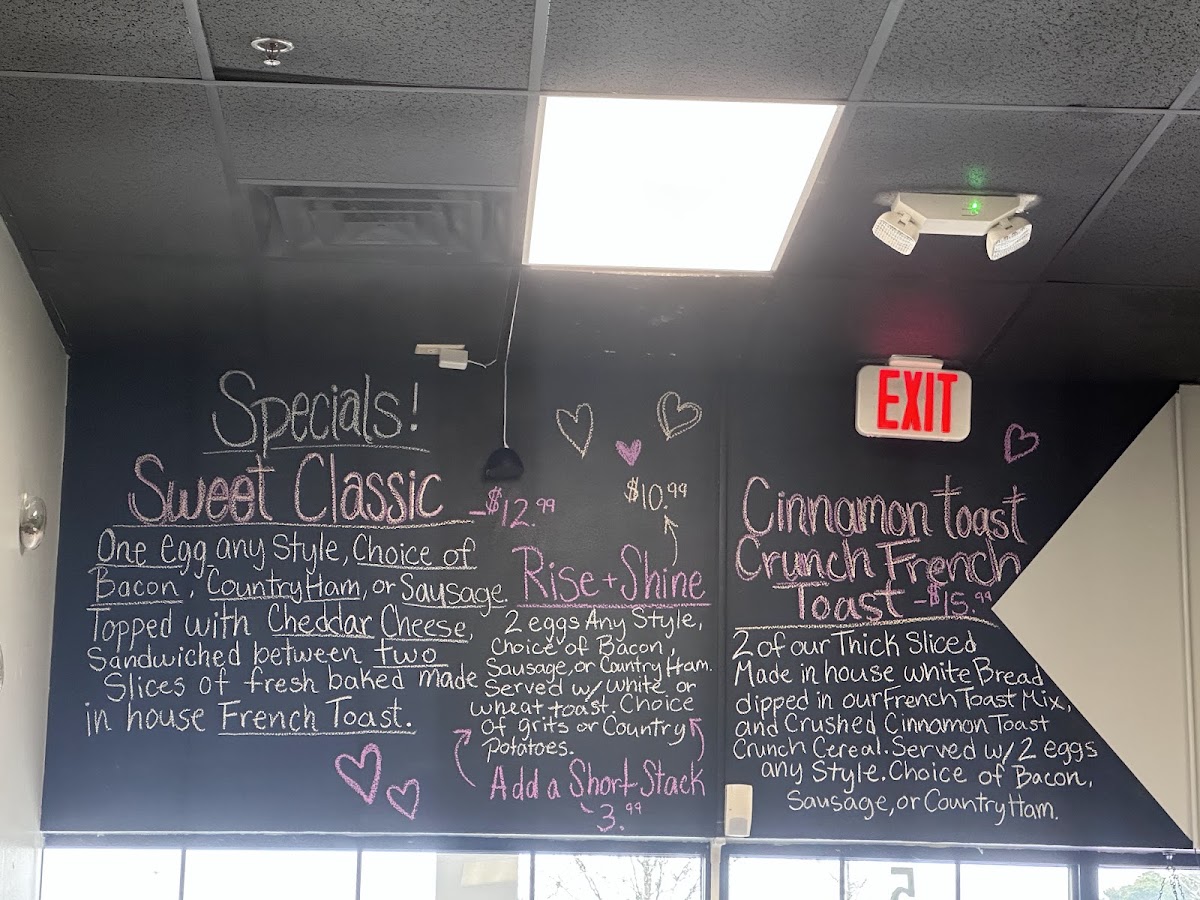 Specials!
Sweet Classic
- $12.99
One Egg any Style, Choice of
Bacon, Country Ham, or Sausage.
Topped with Cheddar Cheese,
Sandwiched between two
Slices of fresh baked made
in house French Toast.
$10.99
Rise + Shine
2 eggs Any Style,
Choice of Bacon,
Sausage, or Country Ham.
Served w/ white or
wheat toast. Choice
of grits or Country
Potatoes.
Add a Short Stack
- 3.99
EXIT
Cinnamon toast
Crunch French
Toast - $15.99
2 of our Thick Sliced
Made in house white Bread
dipped in our French Toast Mix,
and Crushed Cinnamon Toast
Crunch Cereal. Served w/ 2 eggs
any Style. Choice of Bacon,
Sausage, or Country Ham.
5